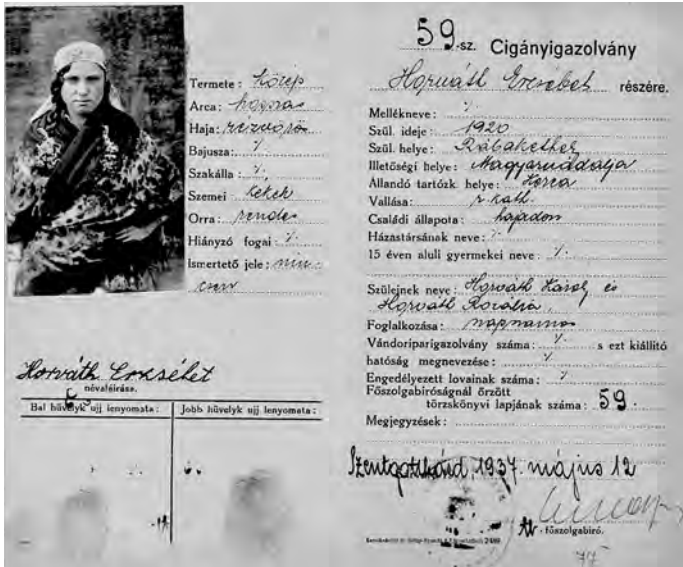 Termete: közép
Arca: hosszas
Haja: rézvörös
Bajusza: ./.
Szakálla: ./.
Szemei kékek
Orra: rendes
Hiányzó fogai ./.
Ismertető jele: nin-
csen
Horváth Erzsébet
névaláírása.
Bal hüvelyk ujj lenyomata:
Jobb hüvelyk ujj lenyomata:
59.-sz. Cigányigazolvány
Horváth Erzsébet részére.
Mellékneve: ./.
Szül. ideje: 1920
Szül. helye: Rábakethely
Illetőségi helye: Magyarnádalja
Állandó tartózk. helye:
Vallása: r. kath.
Családi állapota: hajadon
Házastársának neve: ./.
15 éven aluli gyermekei neve: ./.
Szülejnek neve: Horváth Károly és
Horváth Rozália
Foglalkozása: napszámos
Vándoriparigazolvány száma: ./. s ezt kiállító
hatóság megnevezése: ./.
Engedélyezett lovainak száma: ./.
Főszolgabíróságnál őrzött
törzskönyvi lapjának száma: 59.
Megjegyzések:
Szentgotthárd, 1937. május 12
főszolgabíró.